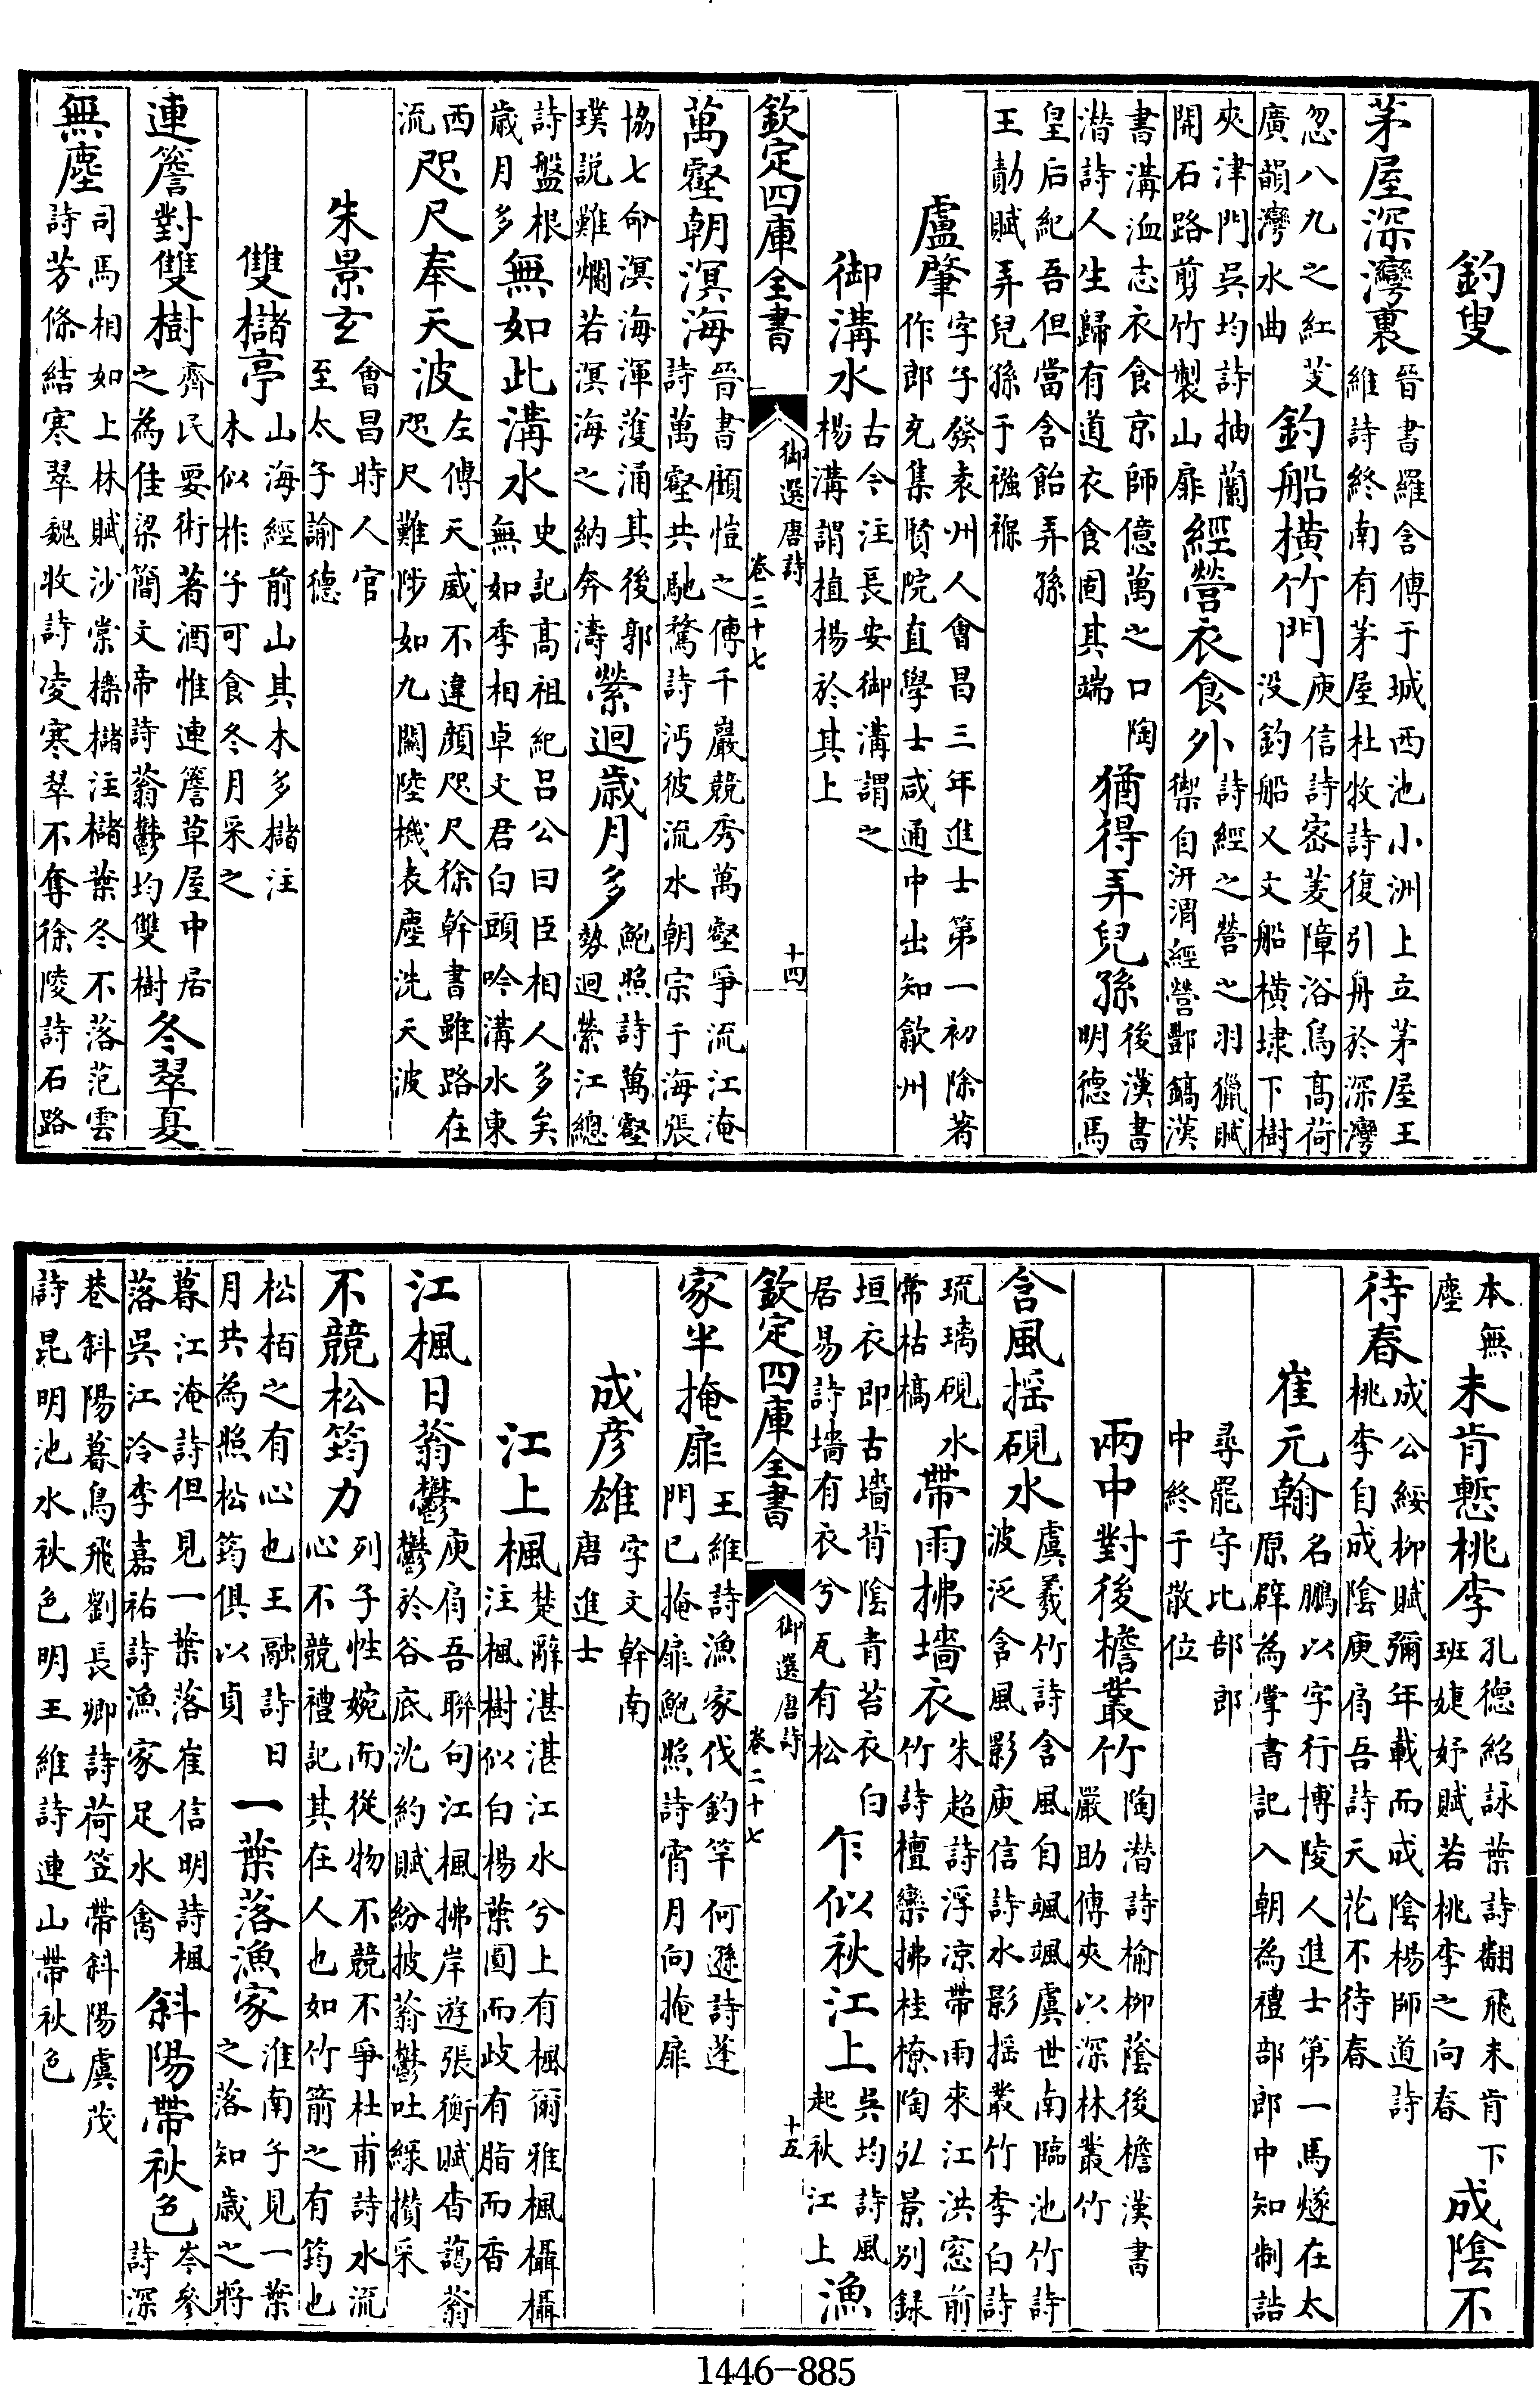 釣叟
茅屋深灣裏晉書羅含傅于城西池小洲上立茅屋王維詩終南有茅屋杜牧詩復引舟於深灣
忽八九之紅芰廣韻灣水曲釣船横竹門庾信詩密菱障浴鳥高荷没釣船乂文船横埭下樹
夾津門吳均詩抽蘭開石路剪竹製山扉經營衣食外詩經之營之羽獵賦禦自汧渭經營酆鎬漢
書溝洫志衣食京師億萬之口陶潜詩人生歸有道衣食固其端猶得弄兒孫後漢書明德馬
皇后紀吾但當含飴弄孫王勣賦弄兒孫于襁褓
盧肇字子發袁州人會昌三年進士第一初除著作郎充集賢院直學士咸通中出知歙州
御溝水古今注長安御溝謂之楊溝謂植楊於其上
欽定四庫全書 御選唐詩 卷二十七 十四
萬壑朝溟海晉書顧愷之傅千巖競秀萬壑爭流江淹詩萬壑共馳騖詩沔彼流水朝宗于海張
協七命溟海渾濩涌其後郭璞説難爛若溟海之納奔濤縈迴歲月多鮑照詩萬壑勢迴縈江總
詩盤根歲月多無如此溝水史記高祖紀吕公曰臣相人多矣無如季相卓文君白頭吟溝水東
西流咫尺奉天波左傅天威不違顔咫尺徐幹書雖路在咫尺難陟如九關陸機表塵洗天波
朱景玄會昌時人官至太子諭德
雙櫧亭山海經前山其木多櫧注木似柞子可食冬月采之
連簷對雙樹齊民要術著酒惟連簷草屋中居之為佳梁簡文帝詩蓊鬱均雙樹冬翠夏
無塵司馬相如上林賦沙棠櫟櫧注櫧葉冬不落范雲詩芳條結寒翠魏收詩凌寒翠不奪徐陵詩石路
本無塵未肯慙桃李孔德紹詠葉詩翻飛未肯下班婕妤賦若桃李之向春成陰不
待春成公綏柳賦彌年載而成陰楊師道詩桃李自成陰庾肩吾詩天花不待春
崔元翰名鵬以字行博陵人進士第一馬燧在太原辟為掌書記入朝為禮部郎中知制誥
尋罷守比部郎中終于散位
雨中對後檐叢竹陶潜詩榆柳蔭後檐漢書嚴助傅夾以深林叢竹
含風揺硯水虞羲竹詩含風自颯颯虞世南臨池竹詩波泛含風影庾信詩水影揺叢竹李白詩
琉璃硯水常枯槁帶雨拂墻衣朱超詩浮凉帶雨來江洪窓前竹詩檀欒拂桂橑陶弘景别録
垣衣即古墻背陰青苔衣白居易詩墻有衣兮瓦有松乍似秋江上吳均詩風起秋江上漁
欽定四庫全書 御選唐詩 卷二十七 十五
家半掩扉王維詩漁家伐釣竿何遜詩蓬門已掩扉鮑照詩霄月向掩扉
成彦雄字文幹南唐進士
江上楓楚辭湛湛江水兮上有楓爾雅楓欇欇注楓樹似白楊葉圓而歧有脂而香
江楓日蓊鬱庾肩吾聯句江楓拂岸遊張衡賦杳藹蓊鬱於谷底沈約賦紛披蓊鬱吐緑攢采
不競松筠力列子性婉而從物不競不爭杜甫詩水流心不競禮記其在人也如竹箭之有筠也
松栢之有心也王融詩日月共為照松筠俱以貞一葉落漁家淮南子見一葉之落知歲之將
暮江淹詩但見一葉落崔信明詩楓落吳江冷李嘉祐詩漁家足水禽斜陽帶秋色岑參詩深
巷斜陽暮鳥飛劉長卿詩荷笠帶斜陽虞茂詩昆明池水秋色明王維詩連山帶秋色
1446-885